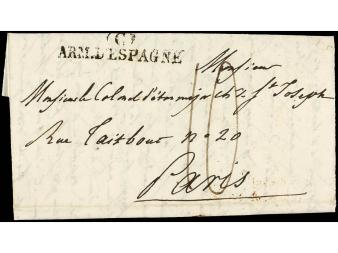 (C)
ARM. D'ESPAGNE
Monsieur
Monsieur le Colonel d'état major ch. St Joseph
Rue Taitbout no 20
Paris